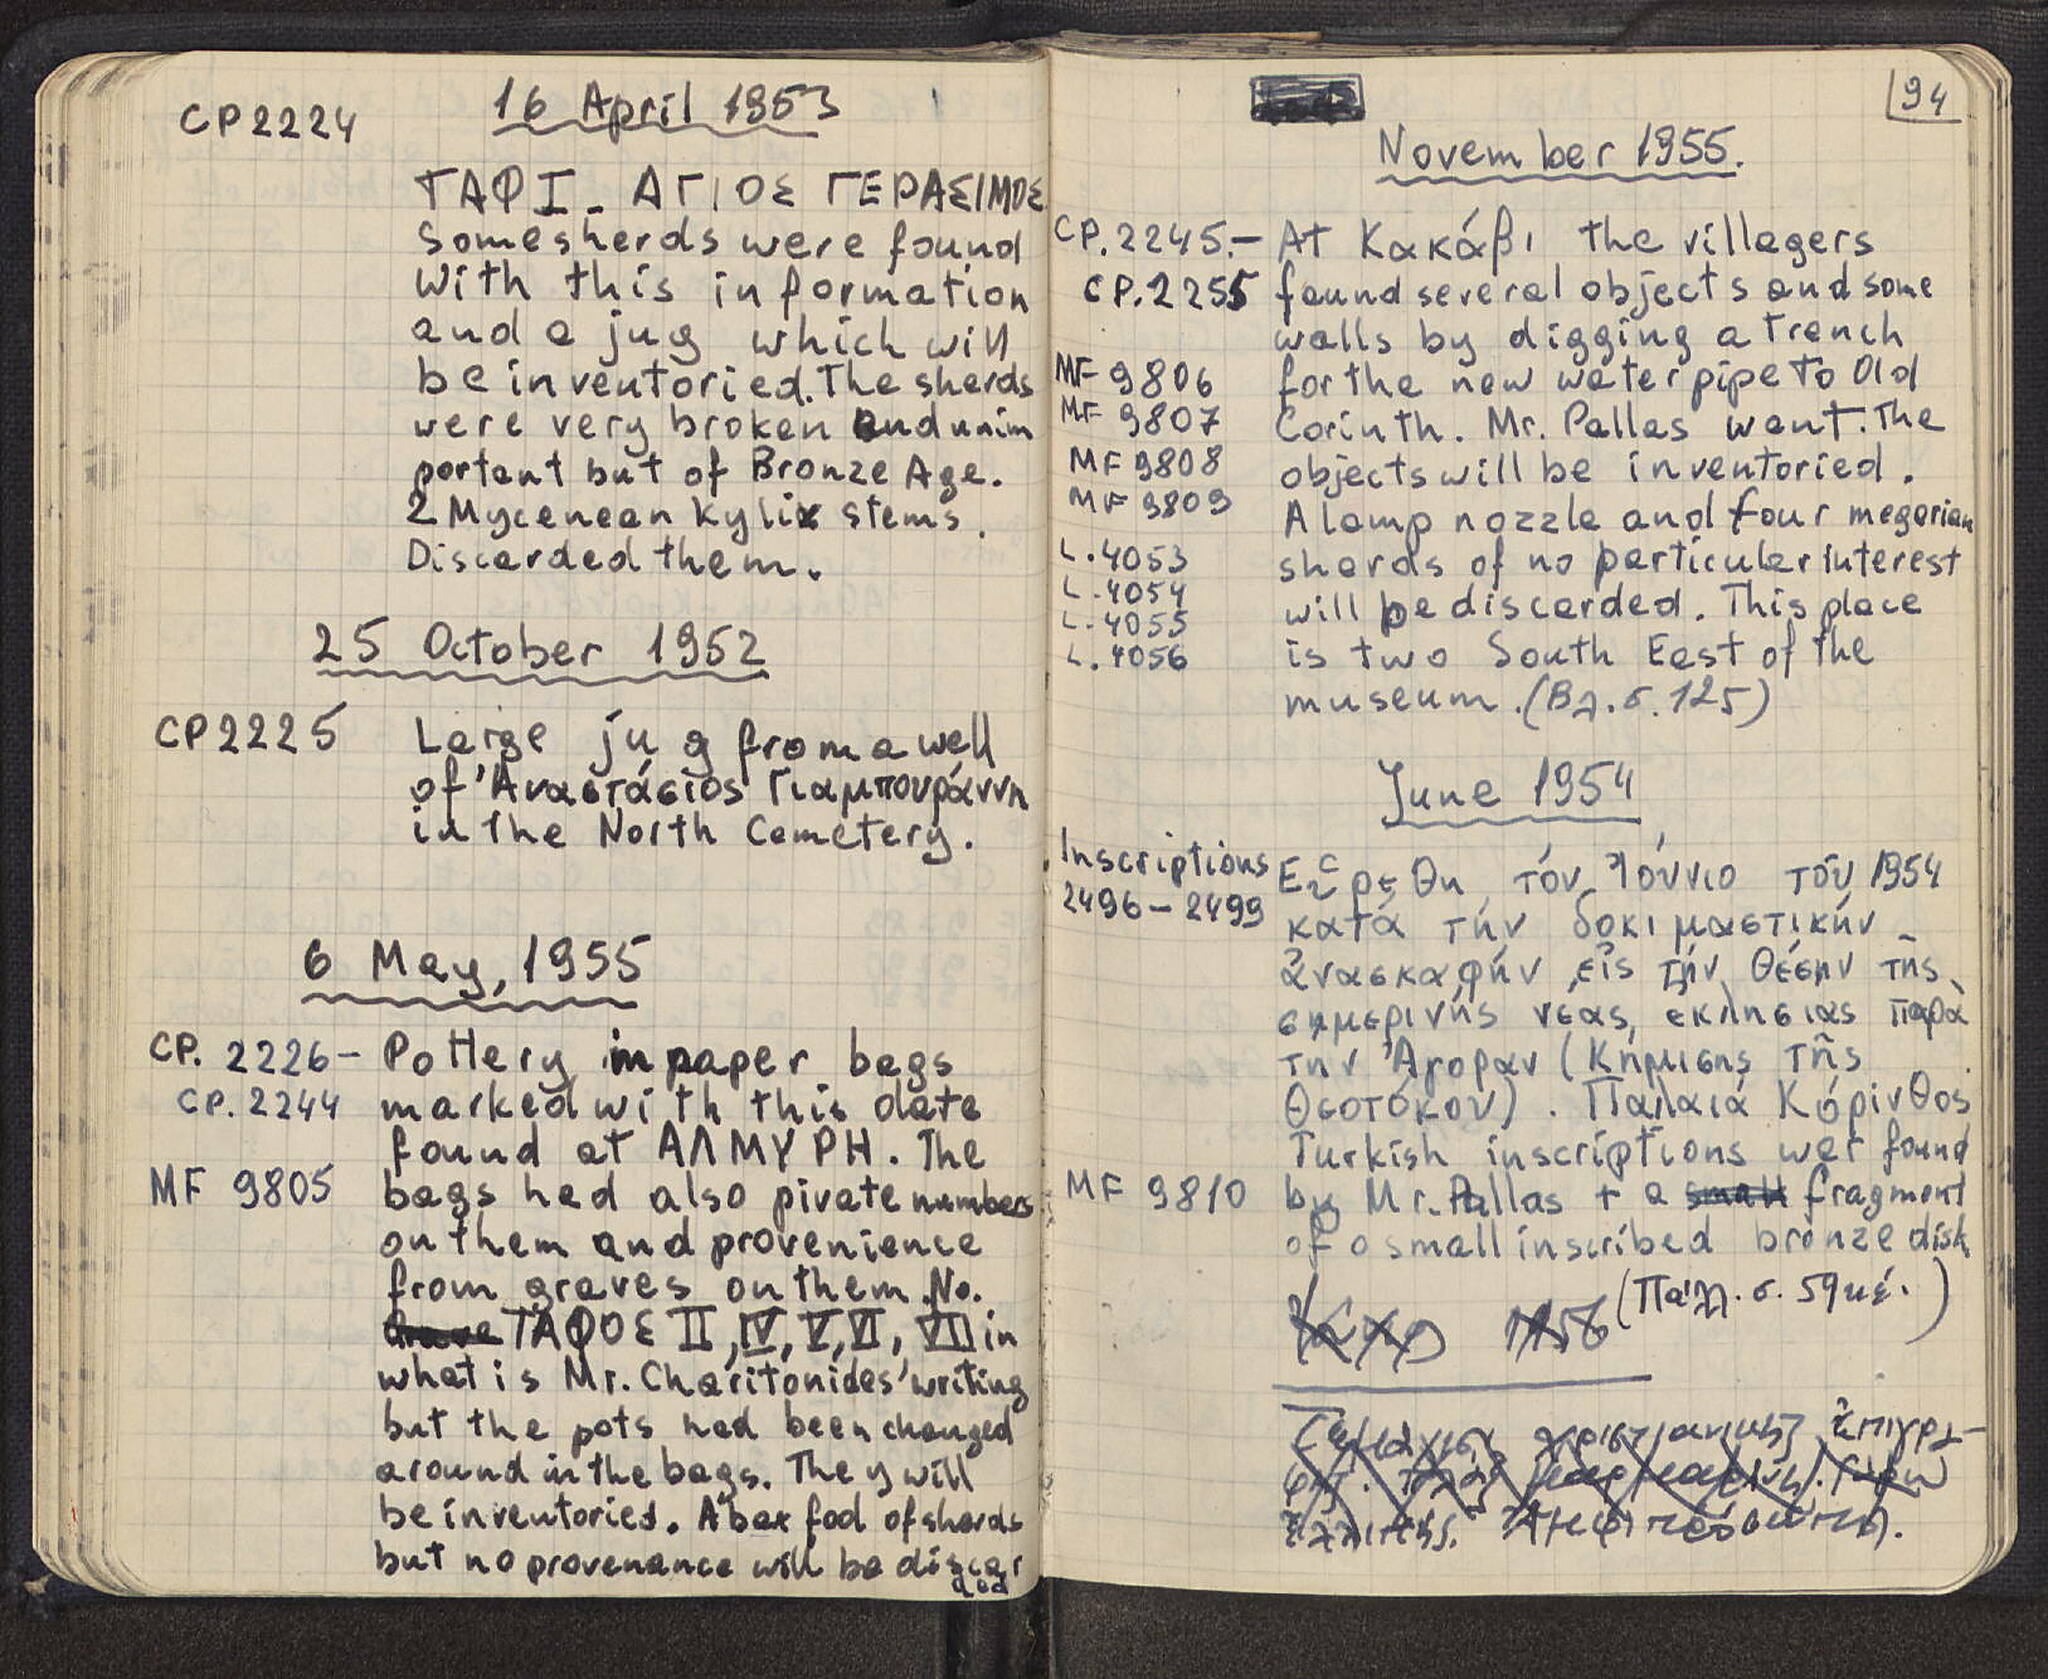 CP2224
16 April 1953
ΤΑΦΙ - ΑΓΙΟΣ ΓΕΡΑΣΙΜΟΣ
Some sherds were found
with this information
and a jug which will
be inventoried. The sherds
were very broken and unim
portant but of Bronze Age.
2 Mycenean kylix stems.
Discarded them.
25 October 1952
CP2225
Large jug from a well
of Ἀναστάσιος Γιαμπουράννη
in the North Cemetery.
6 May, 1955
CP. 2226 - Pottery in paper bags
CP. 2244 marked with this date
found at ΑΛΜΥΡΗ. The
MF 9805 bags had also pivate numbers
on them and provenience
from graves on them. No.
Grave ΤΑΦΟΣ II, IV, V, VI, VII in
what is Mr. Charitonides' writing
but the pots had been changed
around in the bags. They will
be inventoried. A box food of sherds
but no provenance will be discar
ded
94
November 1955.
CP. 2245. - At Κακάβι the villagers
CP. 2255 found several objects and some
walls by digging a trench
MF 9806 for the new water pipe to Old
MF 9807 Corinth. Mr. Pallas went. The
MF 9808 objects will be inventoried.
MF 9809 A lamp nozzle and four megarian
L. 4053 sherds of no particular interest
L. 4054 will be discarded. This place
L. 4055
L. 4056 is two South East of the
museum. (Βλ. σ. 125)
June 1954
Inscriptions
2496 - 2499
Εὑρέθη τόν Ἰούνιο τοῦ 1954
κατά τήν δοκιμαστικήν
ἀνασκαφήν εἰς τήν θέσην τῆς
σημερινῆς νέας ἐκλησιας παρα
την Ἀγοραν (Κήμισης τῆς
Θεοτόκου). Παλαιά Κόρινθος
Turkish inscriptions wer found
MF 9810 by Mr. Pallas + a small fragment
of a small inscribed bronze disk
(Πάλλ. σ. 59 κέ.)
χριστιανικῆς ἐπιγρα-